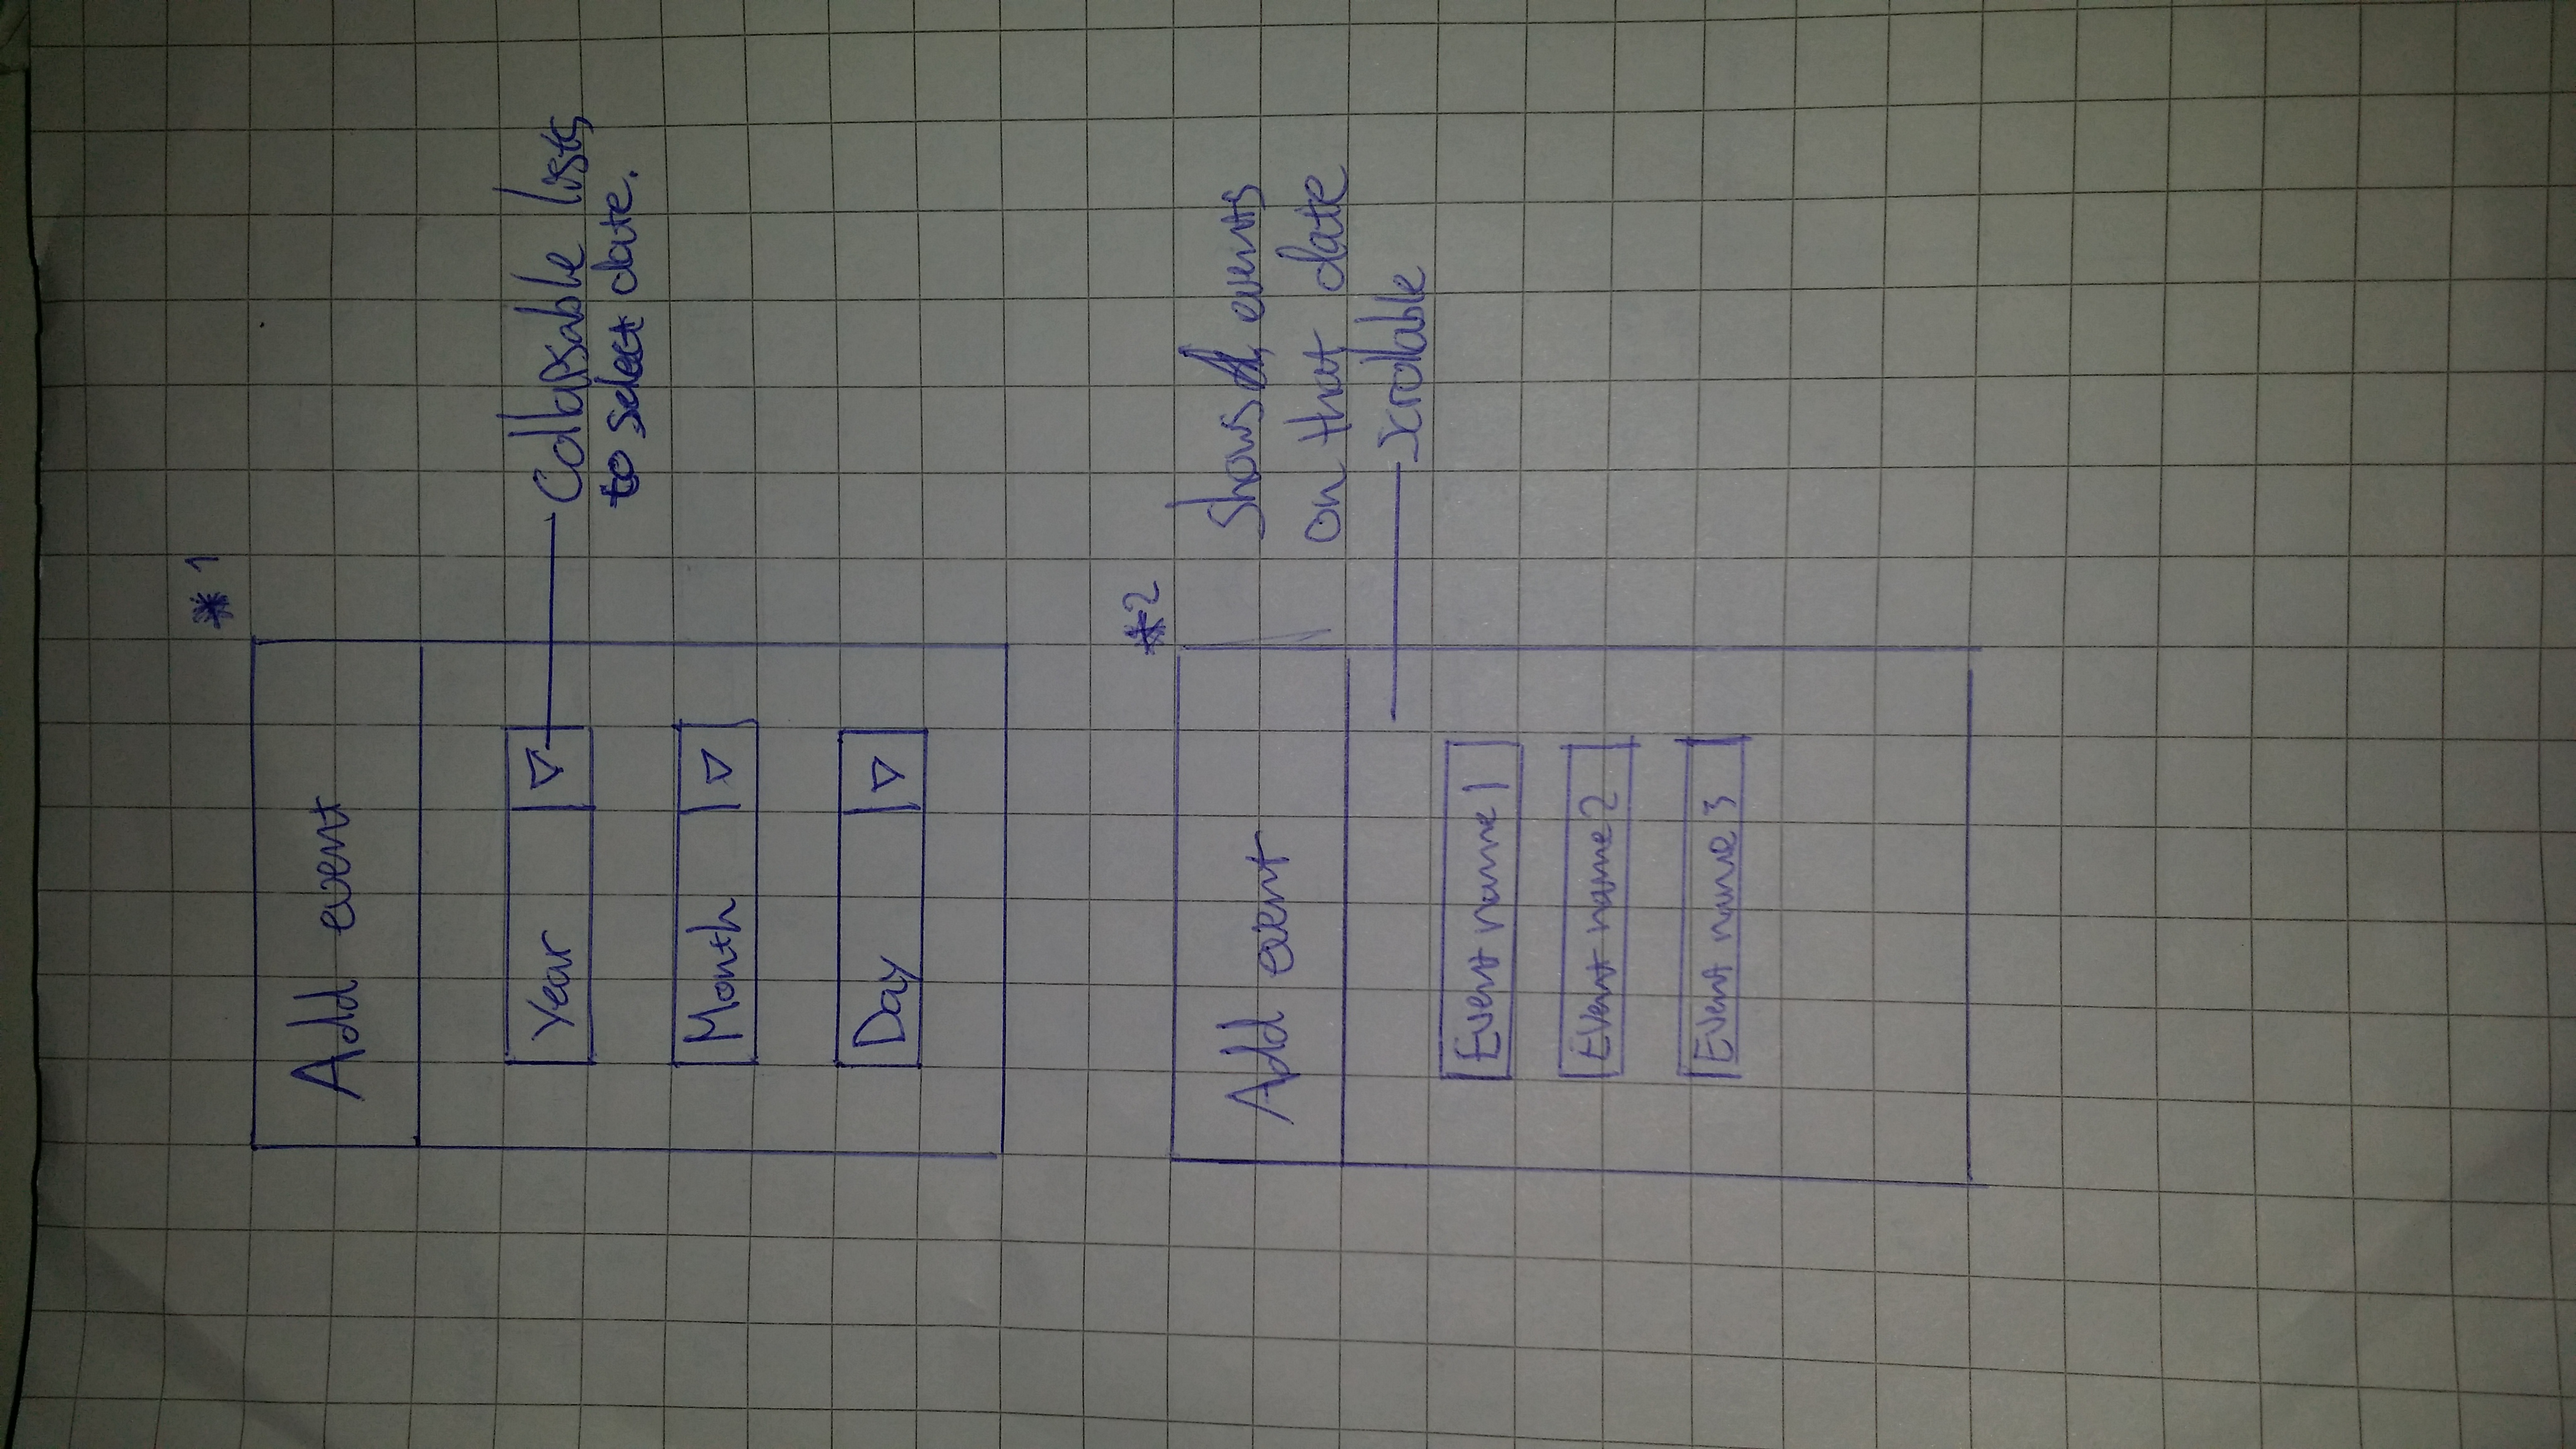 *1
Add event
Year
Collapsable lists
to select date.
Month
Day
*2
Add event
Shows events
on that date
Scrollable
Event name 1
Event name 2
Event name 3